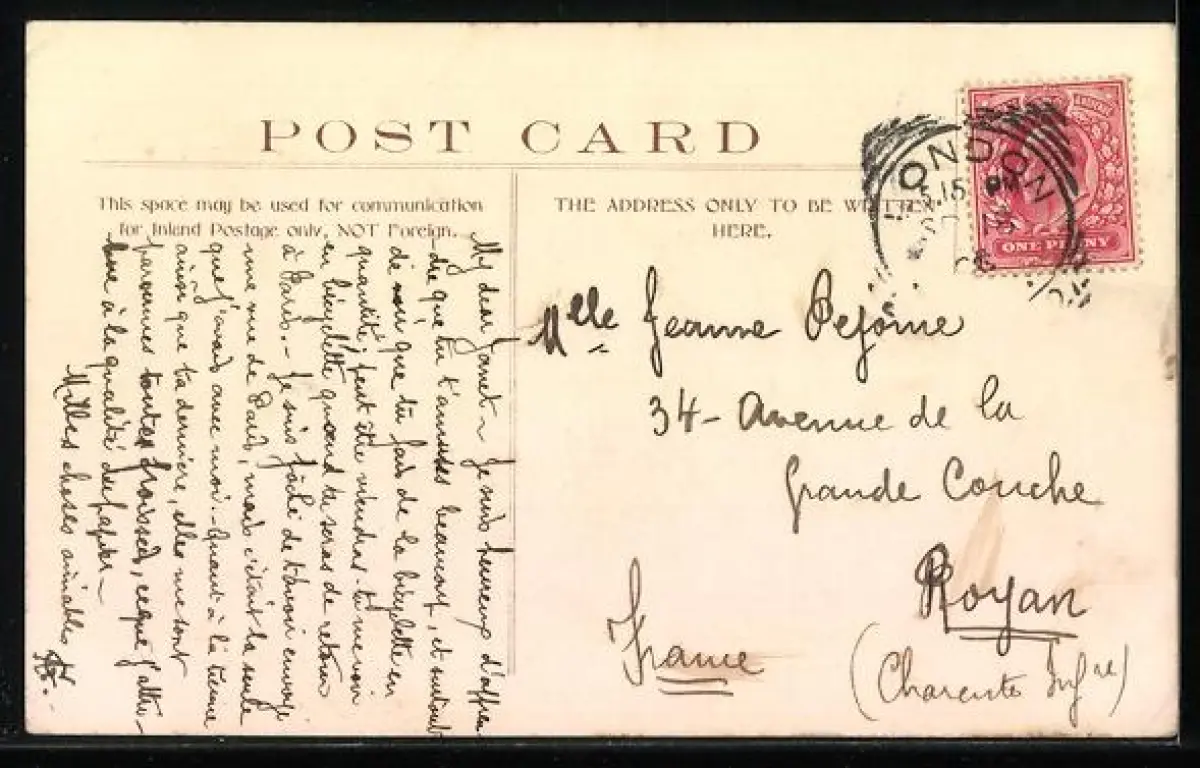 POST CARD
This space may be used for communication
for Inland Postage only, NOT Foreign.
THE ADDRESS ONLY TO BE WRITTEN
HERE.
LONDON
5.15 PM
ONE PENNY
My dear Janet – Je suis heureux d'appren
dre que tu t'amuses beaucoup, et surtout
de voir que tu fais de la bicyclette en
quantité; peut être viendras-tu me voir
en bicyclette quand tu seras de retour
à Paris. – Je suis fâché de t'avoir envoyé
une vue de Paris, mais c'était la seule
que j'avais avec moi. – Quant à la tienne
ainsi que ta dernière, elles me sont
parvenues toutes froissées, ce que j'attri-
bue à la qualité du papier –
Milles choses aimables
Mlle Jeanne Pejôine
34 – Avenue de la
Grande Conche
Royan
(Charente Infre)
France